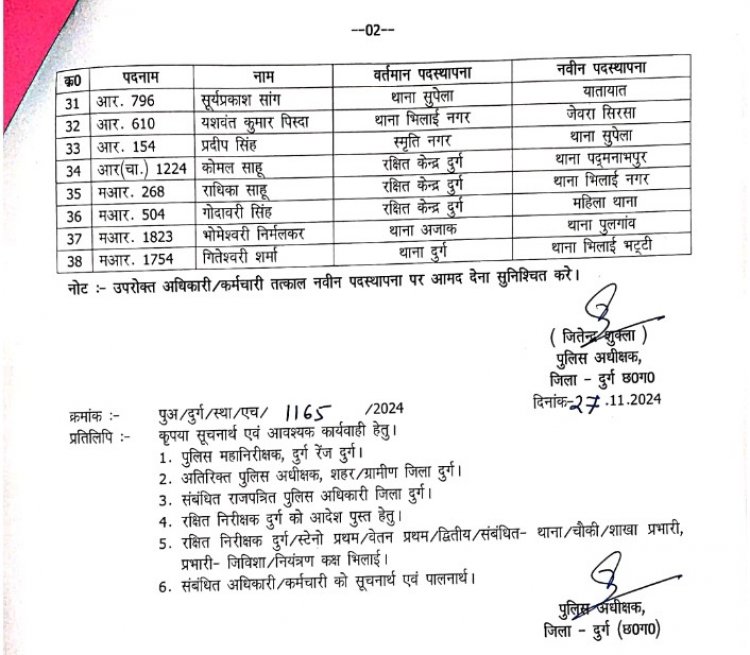 --02--
क0 पदनाम नाम वर्तमान पदस्थापना नवीन पदस्थापना
31 आर. 796 सूर्यप्रकाश सांग थाना सुपेला यातायात
32 आर. 610 यशवंत कुमार पिस्दा थाना भिलाई नगर जेवरा सिरसा
33 आर. 154 प्रदीप सिंह स्मृति नगर थाना सुपेला
34 आर(चा.) 1224 कोमल साहू रक्षित केन्द्र दुर्ग थाना पद्मनाभपुर
35 मआर. 268 राधिका साहू रक्षित केन्द्र दुर्ग थाना भिलाई नगर
36 मआर. 504 गोदावरी सिंह रक्षित केन्द्र दुर्ग महिला थाना
37 मआर. 1823 भोमेश्वरी निर्मलकर थाना अजाक थाना पुलगांव
38 मआर. 1754 गितेश्वरी शर्मा थाना दुर्ग थाना भिलाई भट्टी
नोट :- उपरोक्त अधिकारी/कर्मचारी तत्काल नवीन पदस्थापना पर आमद देना सुनिश्चित करे।
( जितेन्द्र शुक्ला )
पुलिस अधीक्षक,
जिला - दुर्ग छ0ग0
दिनांक-27.11.2024
क्रमांक :- पुअ/दुर्ग/स्था/एच/ 1165 /2024
प्रतिलिपि :- कृपया सूचनार्थ एवं आवश्यक कार्यवाही हेतु।
1. पुलिस महानिरीक्षक, दुर्ग रेंज दुर्ग।
2. अतिरिक्त पुलिस अधीक्षक, शहर/ग्रामीण जिला दुर्ग।
3. संबंधित राजपत्रित पुलिस अधिकारी जिला दुर्ग।
4. रक्षित निरीक्षक दुर्ग को आदेश पुस्त हेतु।
5. रक्षित निरीक्षक दुर्ग/स्टेनो प्रथम/वेतन प्रथम/द्वितीय/संबंधित- थाना/चौकी/शाखा प्रभारी,
प्रभारी- जिविशा/नियंत्रण कक्ष भिलाई।
6. संबंधित अधिकारी/कर्मचारी को सूचनार्थ एवं पालनार्थ।
पुलिस अधीक्षक,
जिला - दुर्ग (छ0ग0)